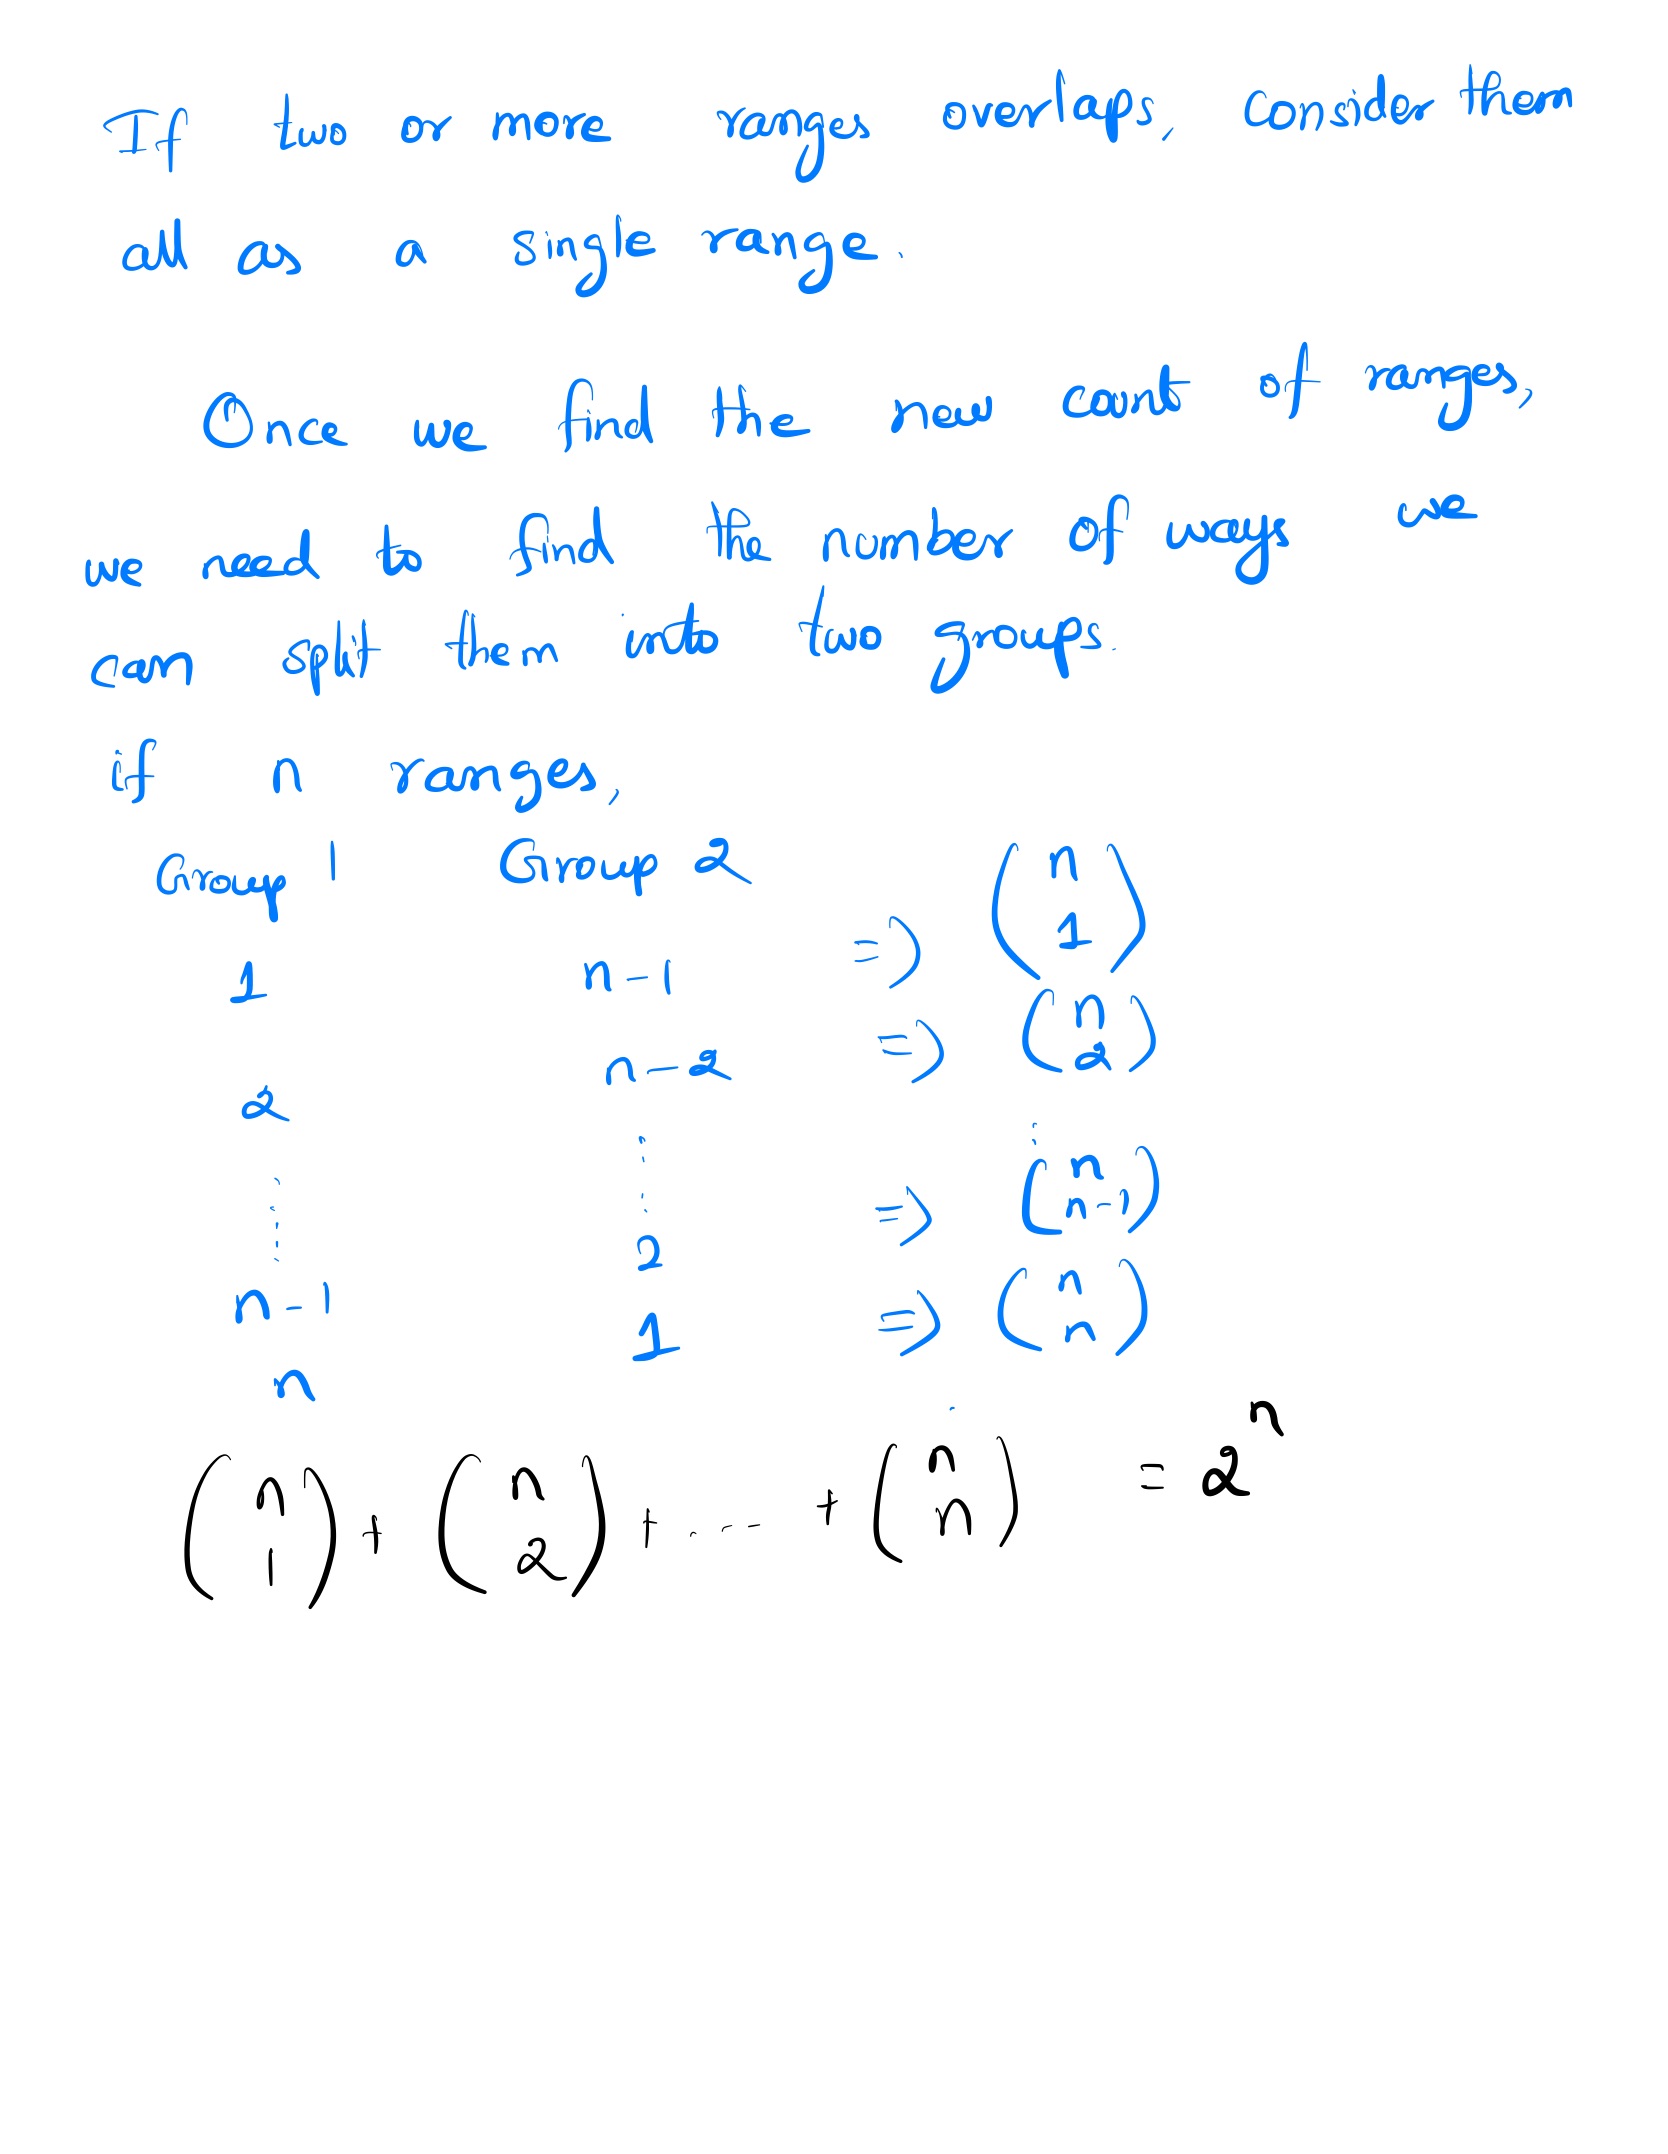 If two or more ranges overlaps, consider them
all as a single range.
Once we find the new count of ranges,
we need to find the number of ways we
can split them into two groups.
if n ranges,
Group 1 Group 2
1 n-1 => (n 1)
2 n-2 => (n 2)
⋮ ⋮ ⋮
n-1 2 => (n n-1)
n 1 => (n n)
(n 1) + (n 2) + .... + (n n) = 2^n